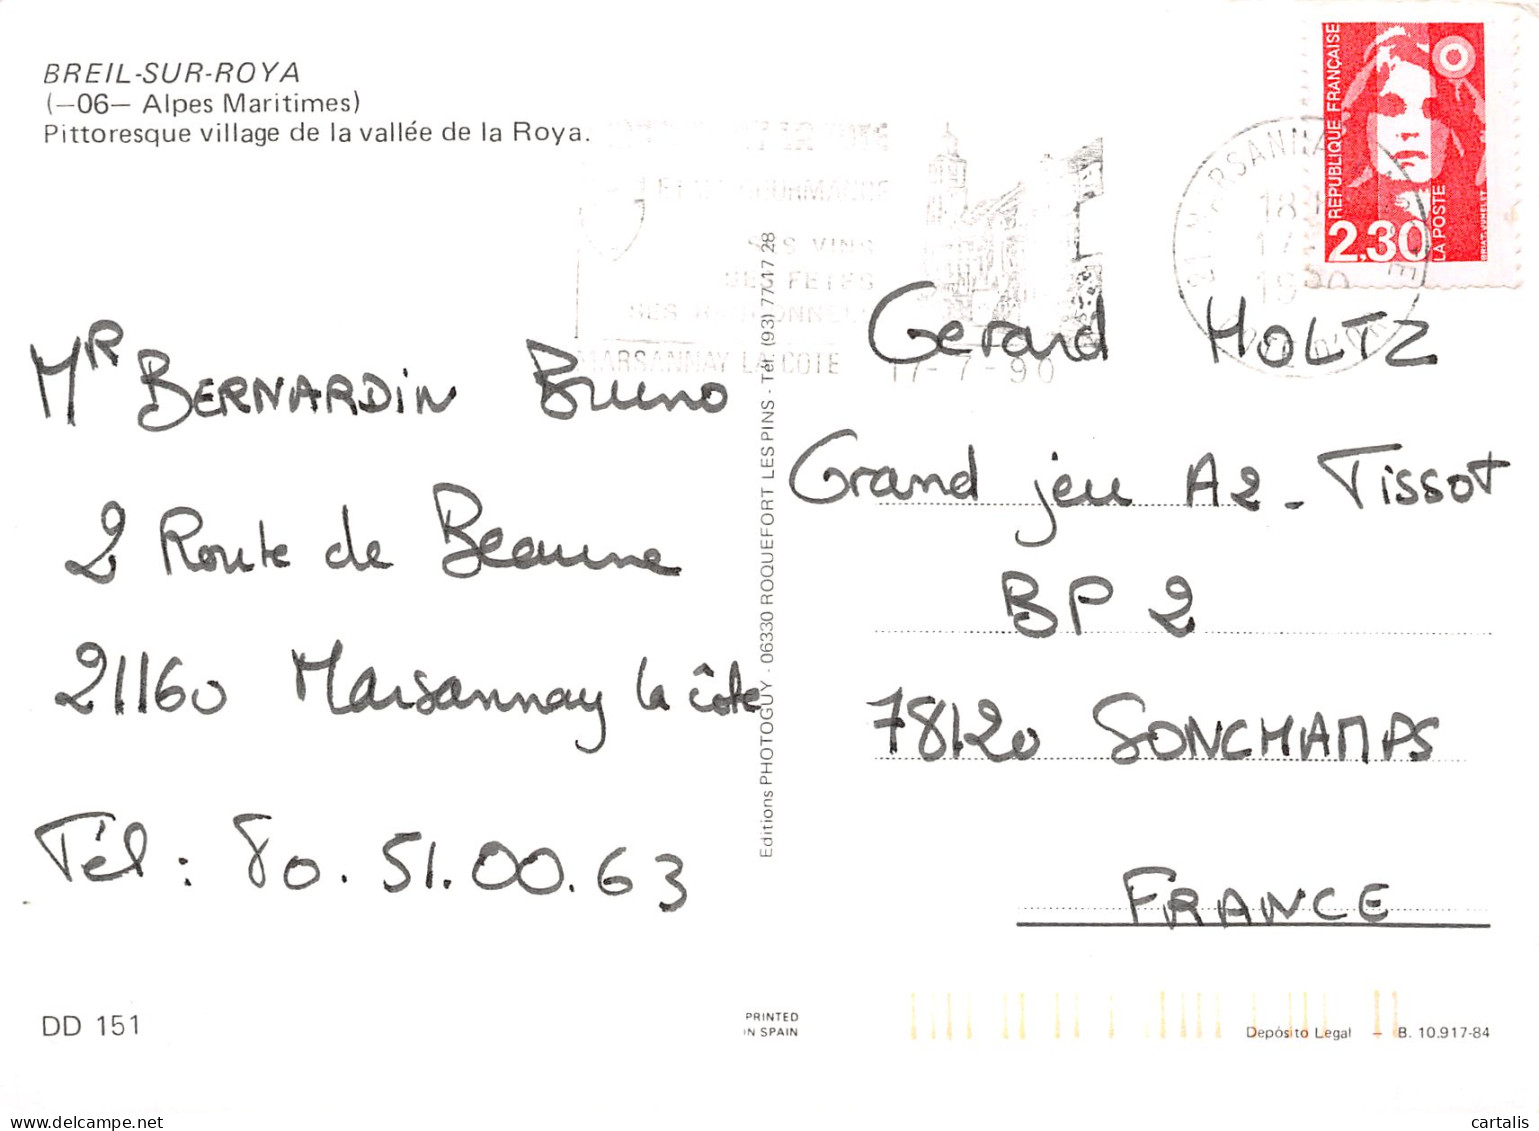 BREIL-SUR-ROYA
(—06— Alpes Maritimes)
Pittoresque village de la vallée de la Roya.
REPUBLIQUE FRANÇAISE
2,30
LA POSTE
21 MARSANNAY
SES VINS
SES FETES
MARSANNAY LA COTE 17-7-90
Mr BERNARDIN Bruno
2 Route de Beaune
21160 Marsannay la côte
Tél : 80.51.00.63
Editions PHOTOGUY - 06330 ROQUEFORT LES PINS - Tél. (93) 77 17 28
Gerard HOLTZ
Grand jeu A2 - Tissot
BP 2
78120 SONCHAMPS
FRANCE
DD 151
PRINTED
IN SPAIN
Depósito Legal — B. 10.917-84
cartalis